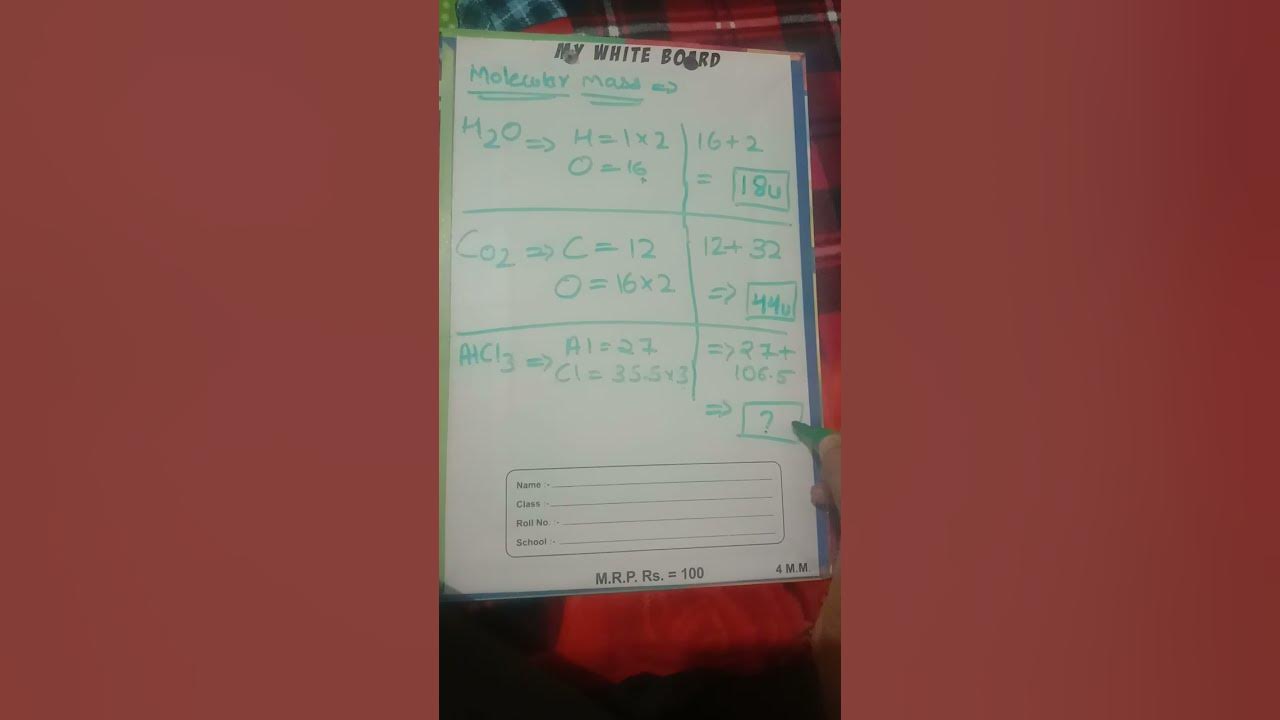 MY WHITE BOARD
Molecular Mass =>
H2O => H = 1 × 2
O = 16
16 + 2
= 18u
CO2 => C = 12
O = 16 × 2
12 + 32
=> 44u
AlCl3 => Al = 27
Cl = 35.5 × 3
=> 27 +
106.5
=> ?
Name :-
Class :-
Roll No. :-
School :-
M.R.P. Rs. = 100
4 M.M